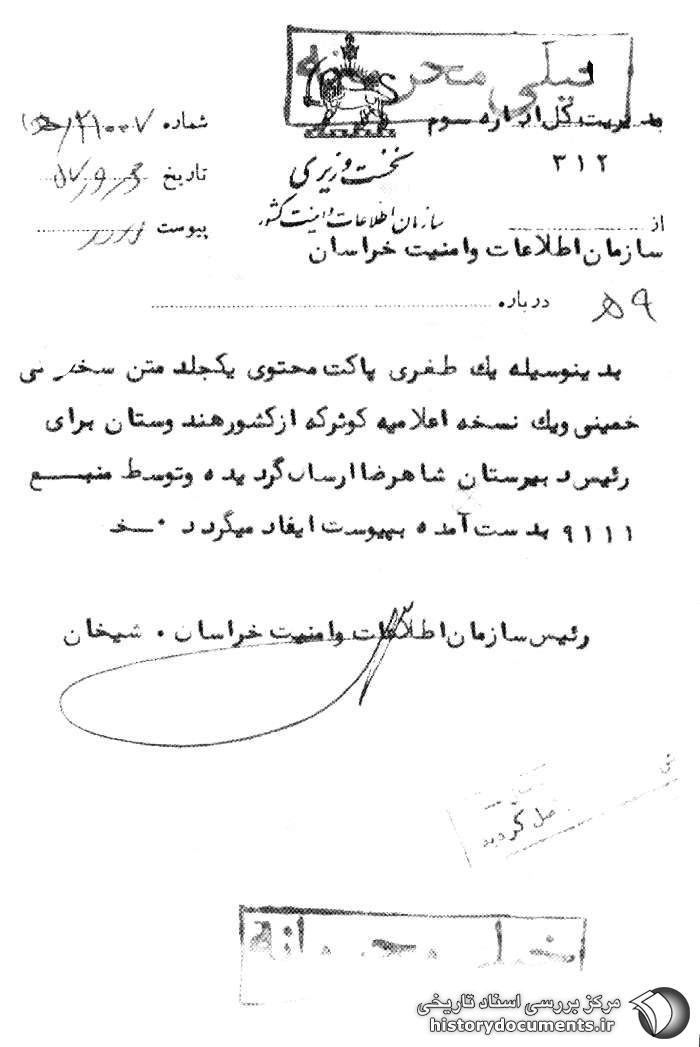 خیلی محرمانه
بمدیریت کل اداره سوم
۳۱۲
شماره
نخست وزیری
تاریخ
سازمان اطلاعات و امنیت کشور
پیوست
از
سازمان اطلاعات وامنیت خراسان
درباره
بدینوسیله یك طغری پاکت محتوی یکجلد متن سخنرانی
خمینی ویك نسخه اعلامیه کوثرکه ازکشورهند وستان برای
رئیس دبیرستان شاهرضا ارسال گردیده وتوسط منبع
۹۱۱۱ بدست آمده بپیوست ایفاد میگردد
رئیس سازمان اطلاعات وامنیت خراسان . شیخان
گردید
خیلی محرمانه
مرکز بررسی اسناد تاریخی
historydocuments.ir